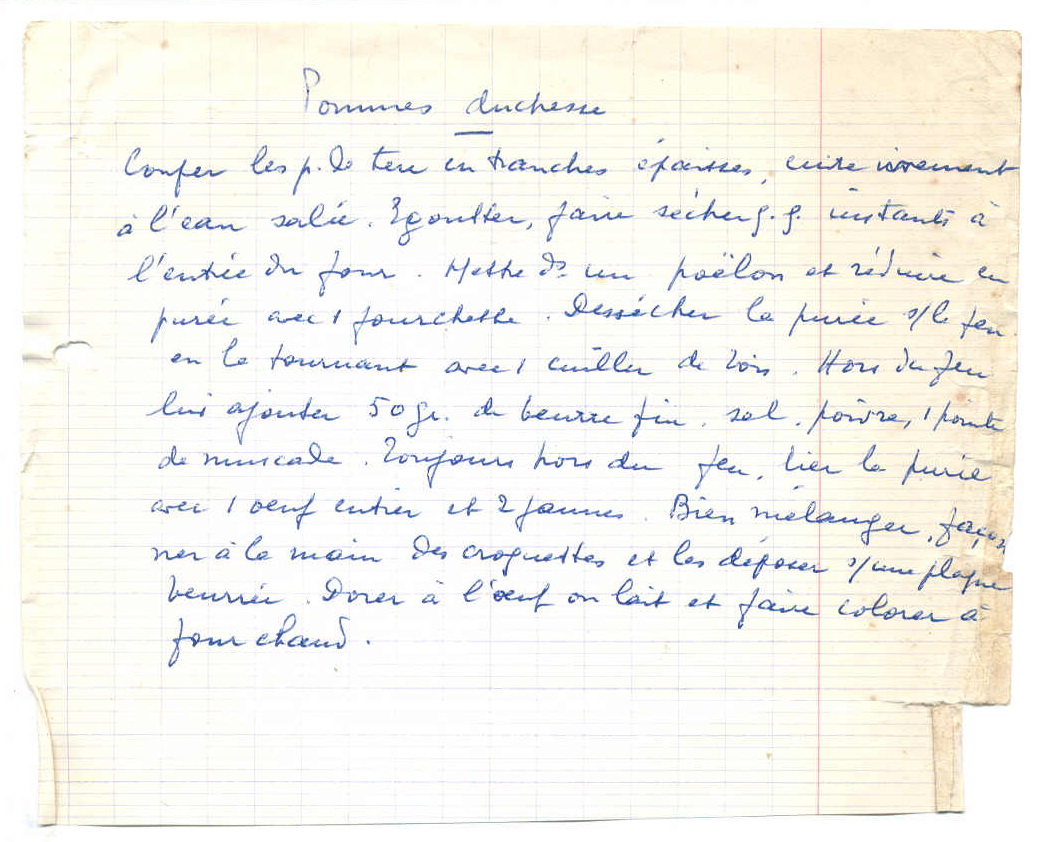 Pommes duchesse
Couper les p. de terre en tranches épaisses, cuire vivement
à l'eau salée. Egoutter, faire sécher q.q. instants à
l'entrée du four. Mettre ds un poëlon et réduire en
purée avec 1 fourchette. Dessécher la purée s/le feu
en la tournant avec 1 cuiller de bois. Hors du feu
lui ajouter 50 gr. de beurre fin, sel, poivre, 1 pointe
de muscade. Toujours hors du feu, lier la purée
avec 1 oeuf entier et 2 jaunes. Bien mélanger, façon
ner à la main des croquettes et les déposer s/une plaque
beurrée. Dorer à l'oeuf ou lait et faire colorer à
four chaud.